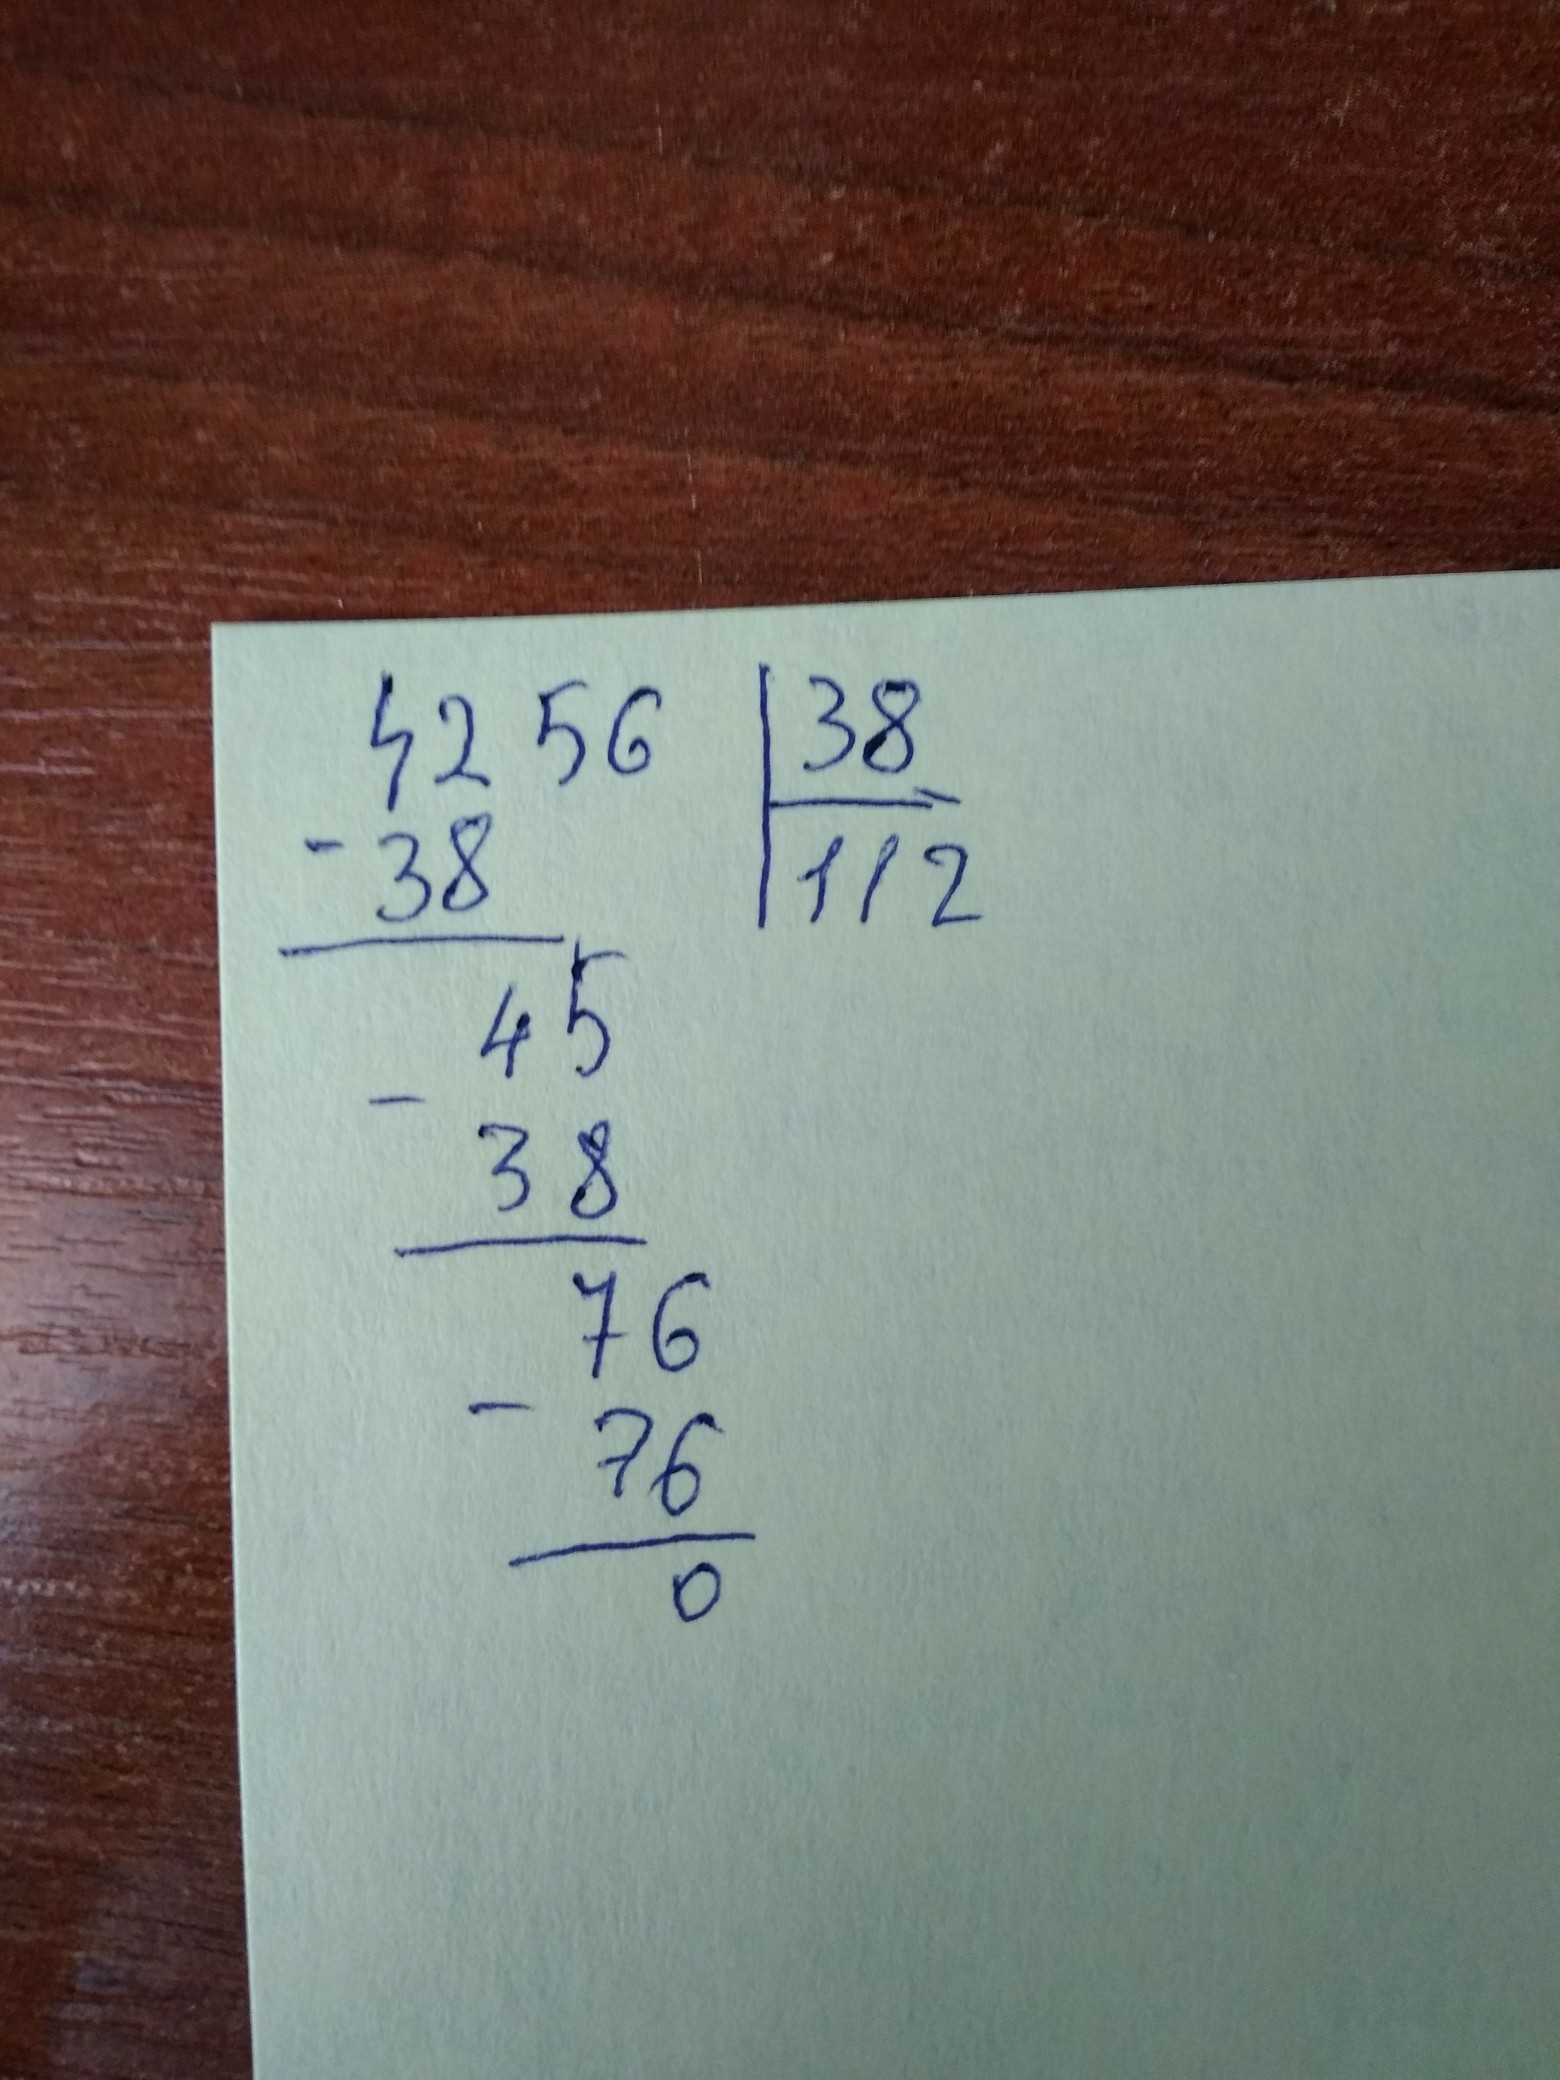 4256 38
- 38 112
45
- 38
76
- 76
0